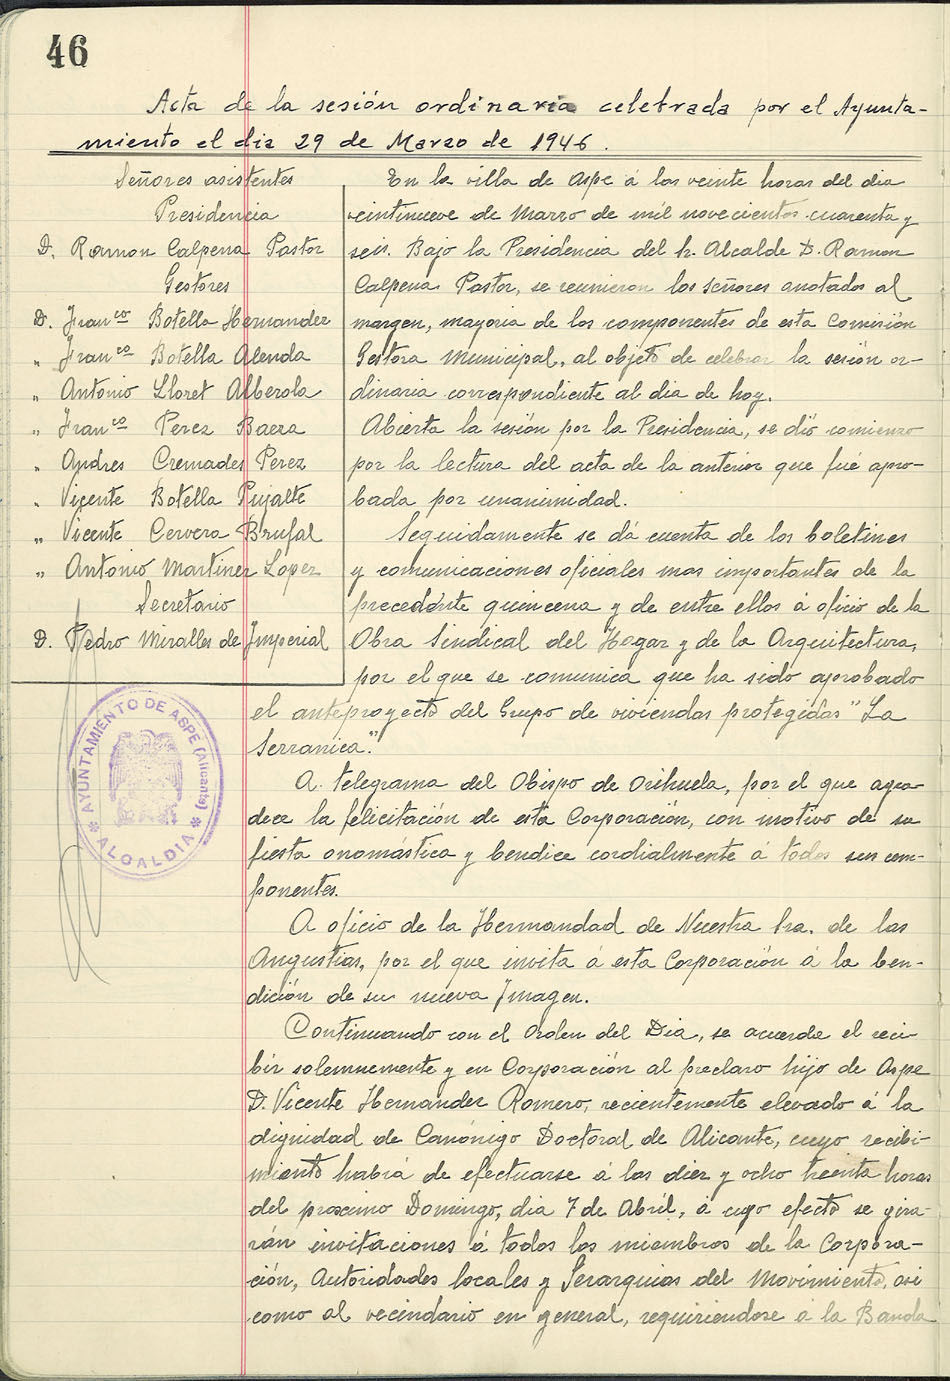 46
Acta de la sesión ordinaria celebrada por el Ayunta-
miento el dia 29 de Marzo de 1946.
Señores asistentes
Presidencia
D. Ramon Calpena Pastor
Gestores
D. Franco Botella Hernandez
" Franco Botella Alenda
" Antonio Lloret Alberola
" Franco Perez Baeza
" Andres Cremades Perez
" Vicente Botella Pujalte
" Vicente Cervera Brufal
" Antonio Martinez Lopez
Secretario
D. Pedro Miralles de Imperial
AYUNTAMIENTO DE ASPE (Alicante)
* ALCALDIA *
En la villa de Aspe á las veinte horas del dia
veintinueve de Marzo de mil novecientos cuarenta y
seis. Bajo la Presidencia del Sr. Alcalde D. Ramon
Calpena Pastor, se reunieron los señores anotados al
margen, mayoria de los componentes de esta Comisión
Gestora Municipal, al objeto de celebrar la sesión or-
dinaria correspondiente al dia de hoy.
Abierta la sesión por la Presidencia, se dió comienzo
por la lectura del acta de la anterior que fué apro-
bada por unanimidad.
Seguidamente se dá cuenta de los boletines
y comunicaciones oficiales mas importantes de la
precedente quincena y de entre ellos á oficio de la
Obra Sindical del Hogar y de la Arquitectura,
por el que se comunica que ha sido aprobado
el anteproyecto del Grupo de viviendas protegidas "La
Serranica".
A telegrama del Obispo de Orihuela, por el que agra-
dece la felicitación de esta Corporación, con motivo de su
fiesta onomástica y bendice cordialmente á todos sus com-
ponentes.
A oficio de la Hermandad de Nuestra Sra. de las
Angustias, por el que invita á esta Corporación á la ben-
dición de su nueva Imagen.
Continuando con el Orden del Dia, se acuerda el reci-
bir solemnemente y en Corporación al preclaro hijo de Aspe
D. Vicente Hernandez Romero, recientemente elevado á la
dignidad de Canónigo Doctoral de Alicante, cuyo recibi-
miento habrá de efectuarse á las diez y ocho treinta horas
del proximo Domingo, dia 7 de Abril, á cuyo efecto se gira-
rán invitaciones á todos los miembros de la Corpora-
ción, Autoridades locales y Jerarquias del Movimiento, asi
como al vecindario en general, requiriendose á la Banda